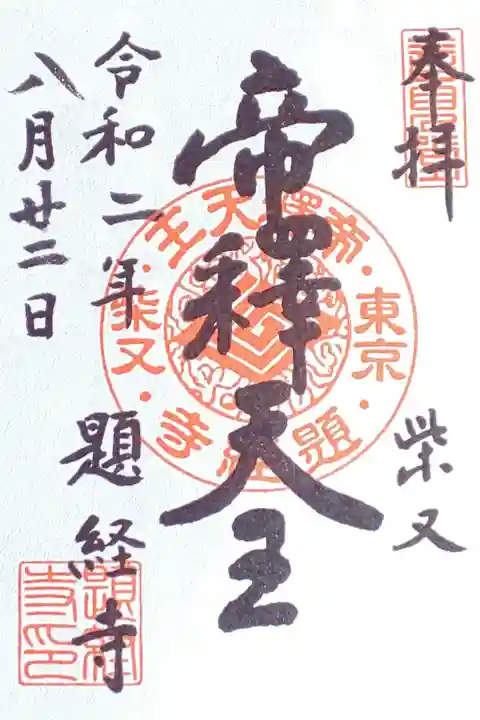 奉拝
柴又
帝釋天王
令和二年
八月廿二日
題経寺
帝釋天王
東京
題経寺
柴又
題経寺印